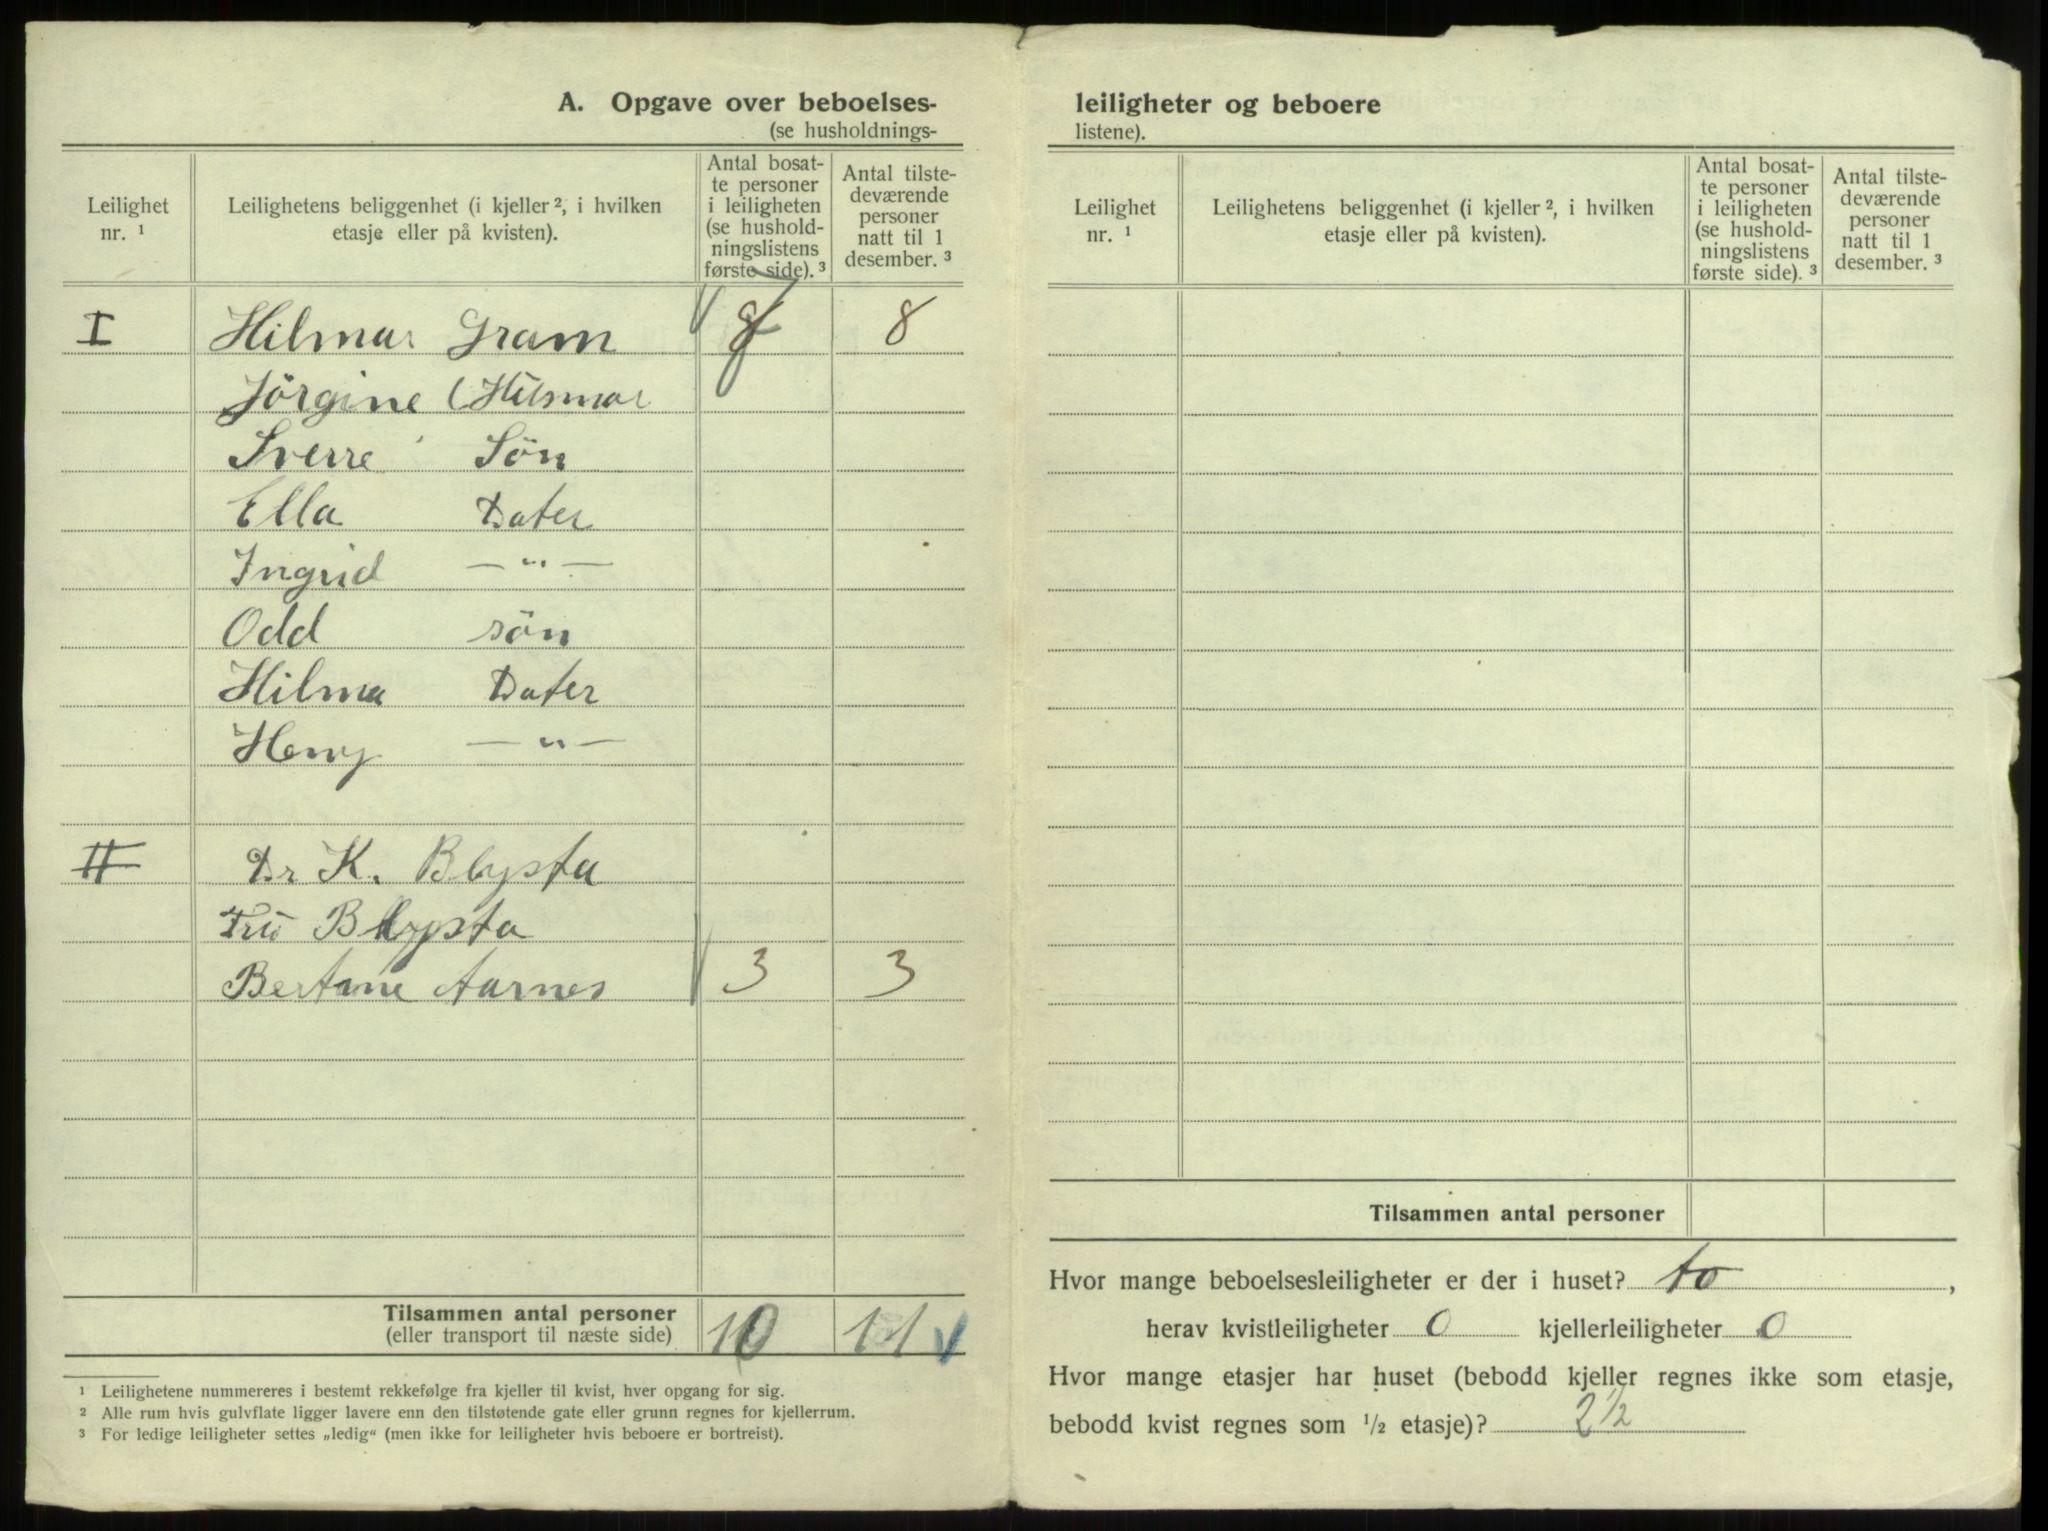 A. Opgave over beboelses-
(se husholdnings-
Leilighet nr. ¹
Leilighetens beliggenhet (i kjeller ², i hvilken etasje eller på kvisten).
Antal bosat-
te personer
i leiligheten
(se hushold-
ningslistens
første side). ³
Antal tilste-
deværende
personer
natt til 1
desember. ³
I Hilmar Gram 7 8
Jörgine (Hilsmar
Sverre Sön
Ella Dater
Ingrid — " —
Odd sön
Hilma Dater
Heny — " —
II Dr K. Blysta
Fru Blysta
Bertine Aarnes 3 3
Tilsammen antal personer
(eller transport til næste side) 10 11
¹ Leilighetene nummereres i bestemt rekkefølge fra kjeller til kvist, hver opgang for sig.
² Alle rum hvis gulvflate ligger lavere enn den tilstøtende gate eller grunn regnes for kjellerrum.
³ For ledige leiligheter settes „ledig“ (men ikke for leiligheter hvis beboere er bortreist).
leiligheter og beboere
listene).
Leilighet nr. ¹
Leilighetens beliggenhet (i kjeller ², i hvilken etasje eller på kvisten).
Antal bosat-
te personer
i leiligheten
(se hushold-
ningslistens
første side). ³
Antal tilste-
deværende
personer
natt til 1
desember. ³
Tilsammen antal personer
Hvor mange beboelsesleiligheter er der i huset? to ,
herav kvistleiligheter 0 kjellerleiligheter 0
Hvor mange etasjer har huset (bebodd kjeller regnes ikke som etasje,
bebodd kvist regnes som ½ etasje)? 2½